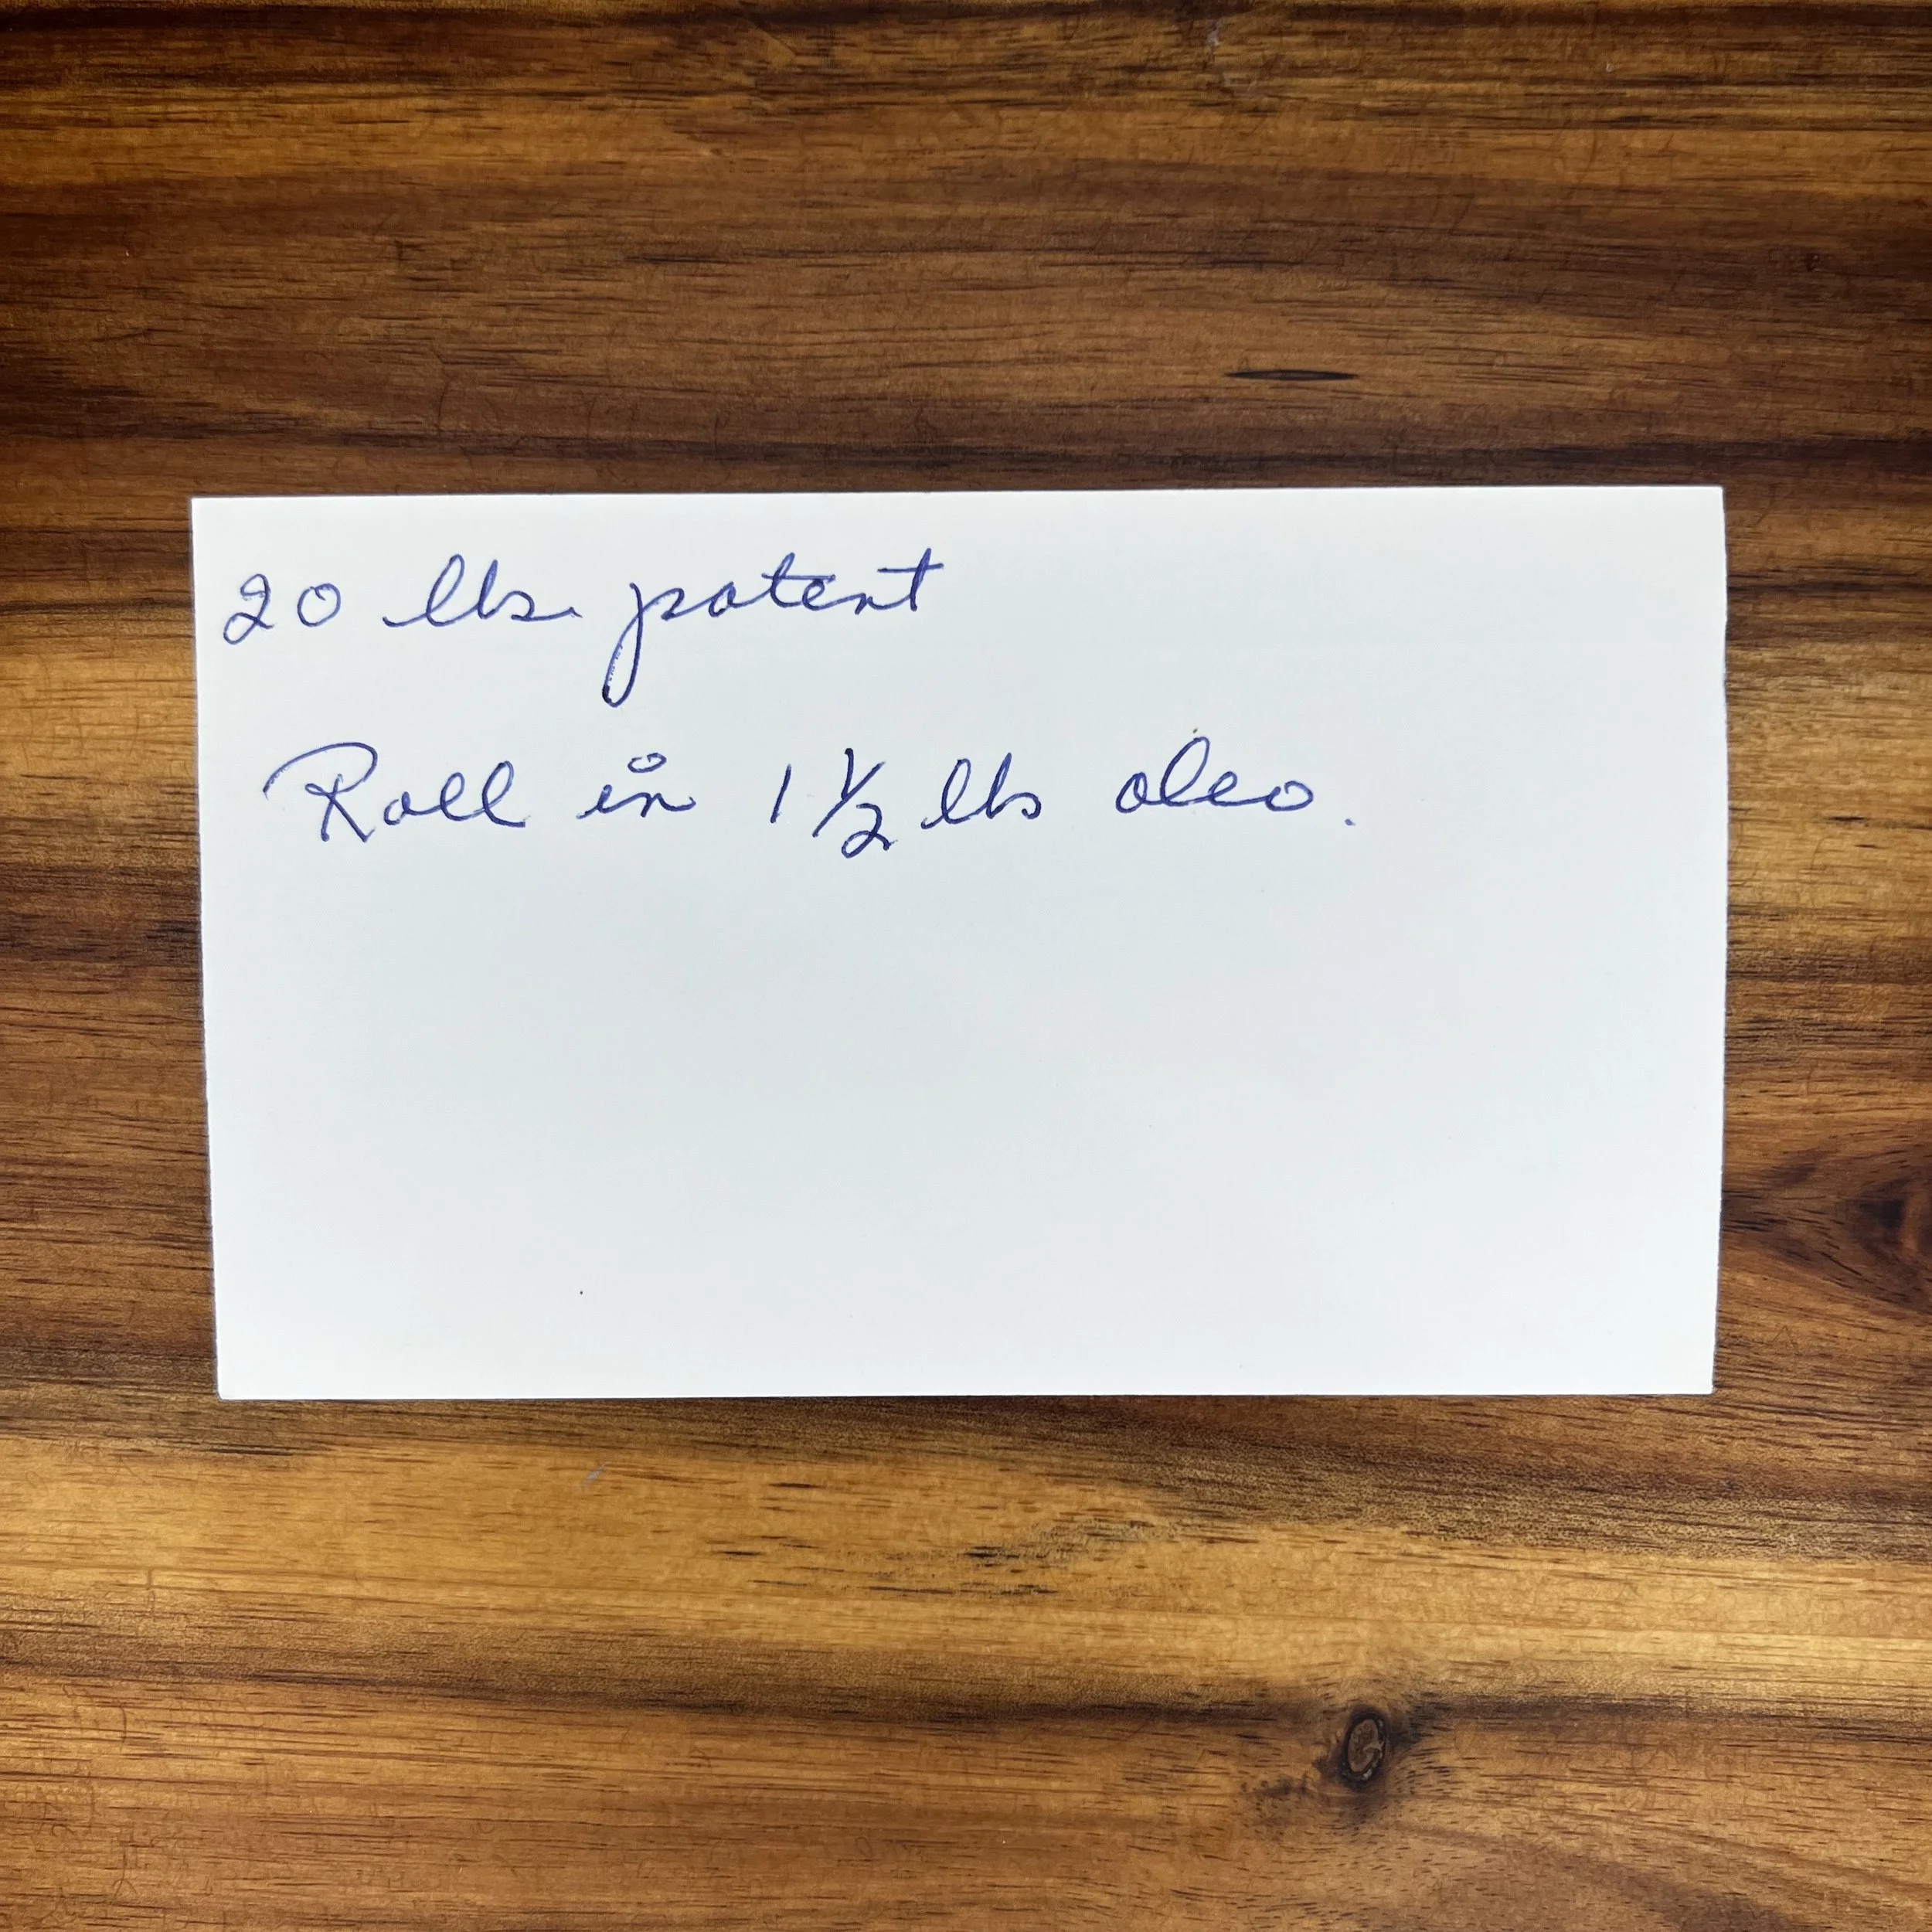 20 lbs. patent
Roll in 1 1/2 lbs oleo.